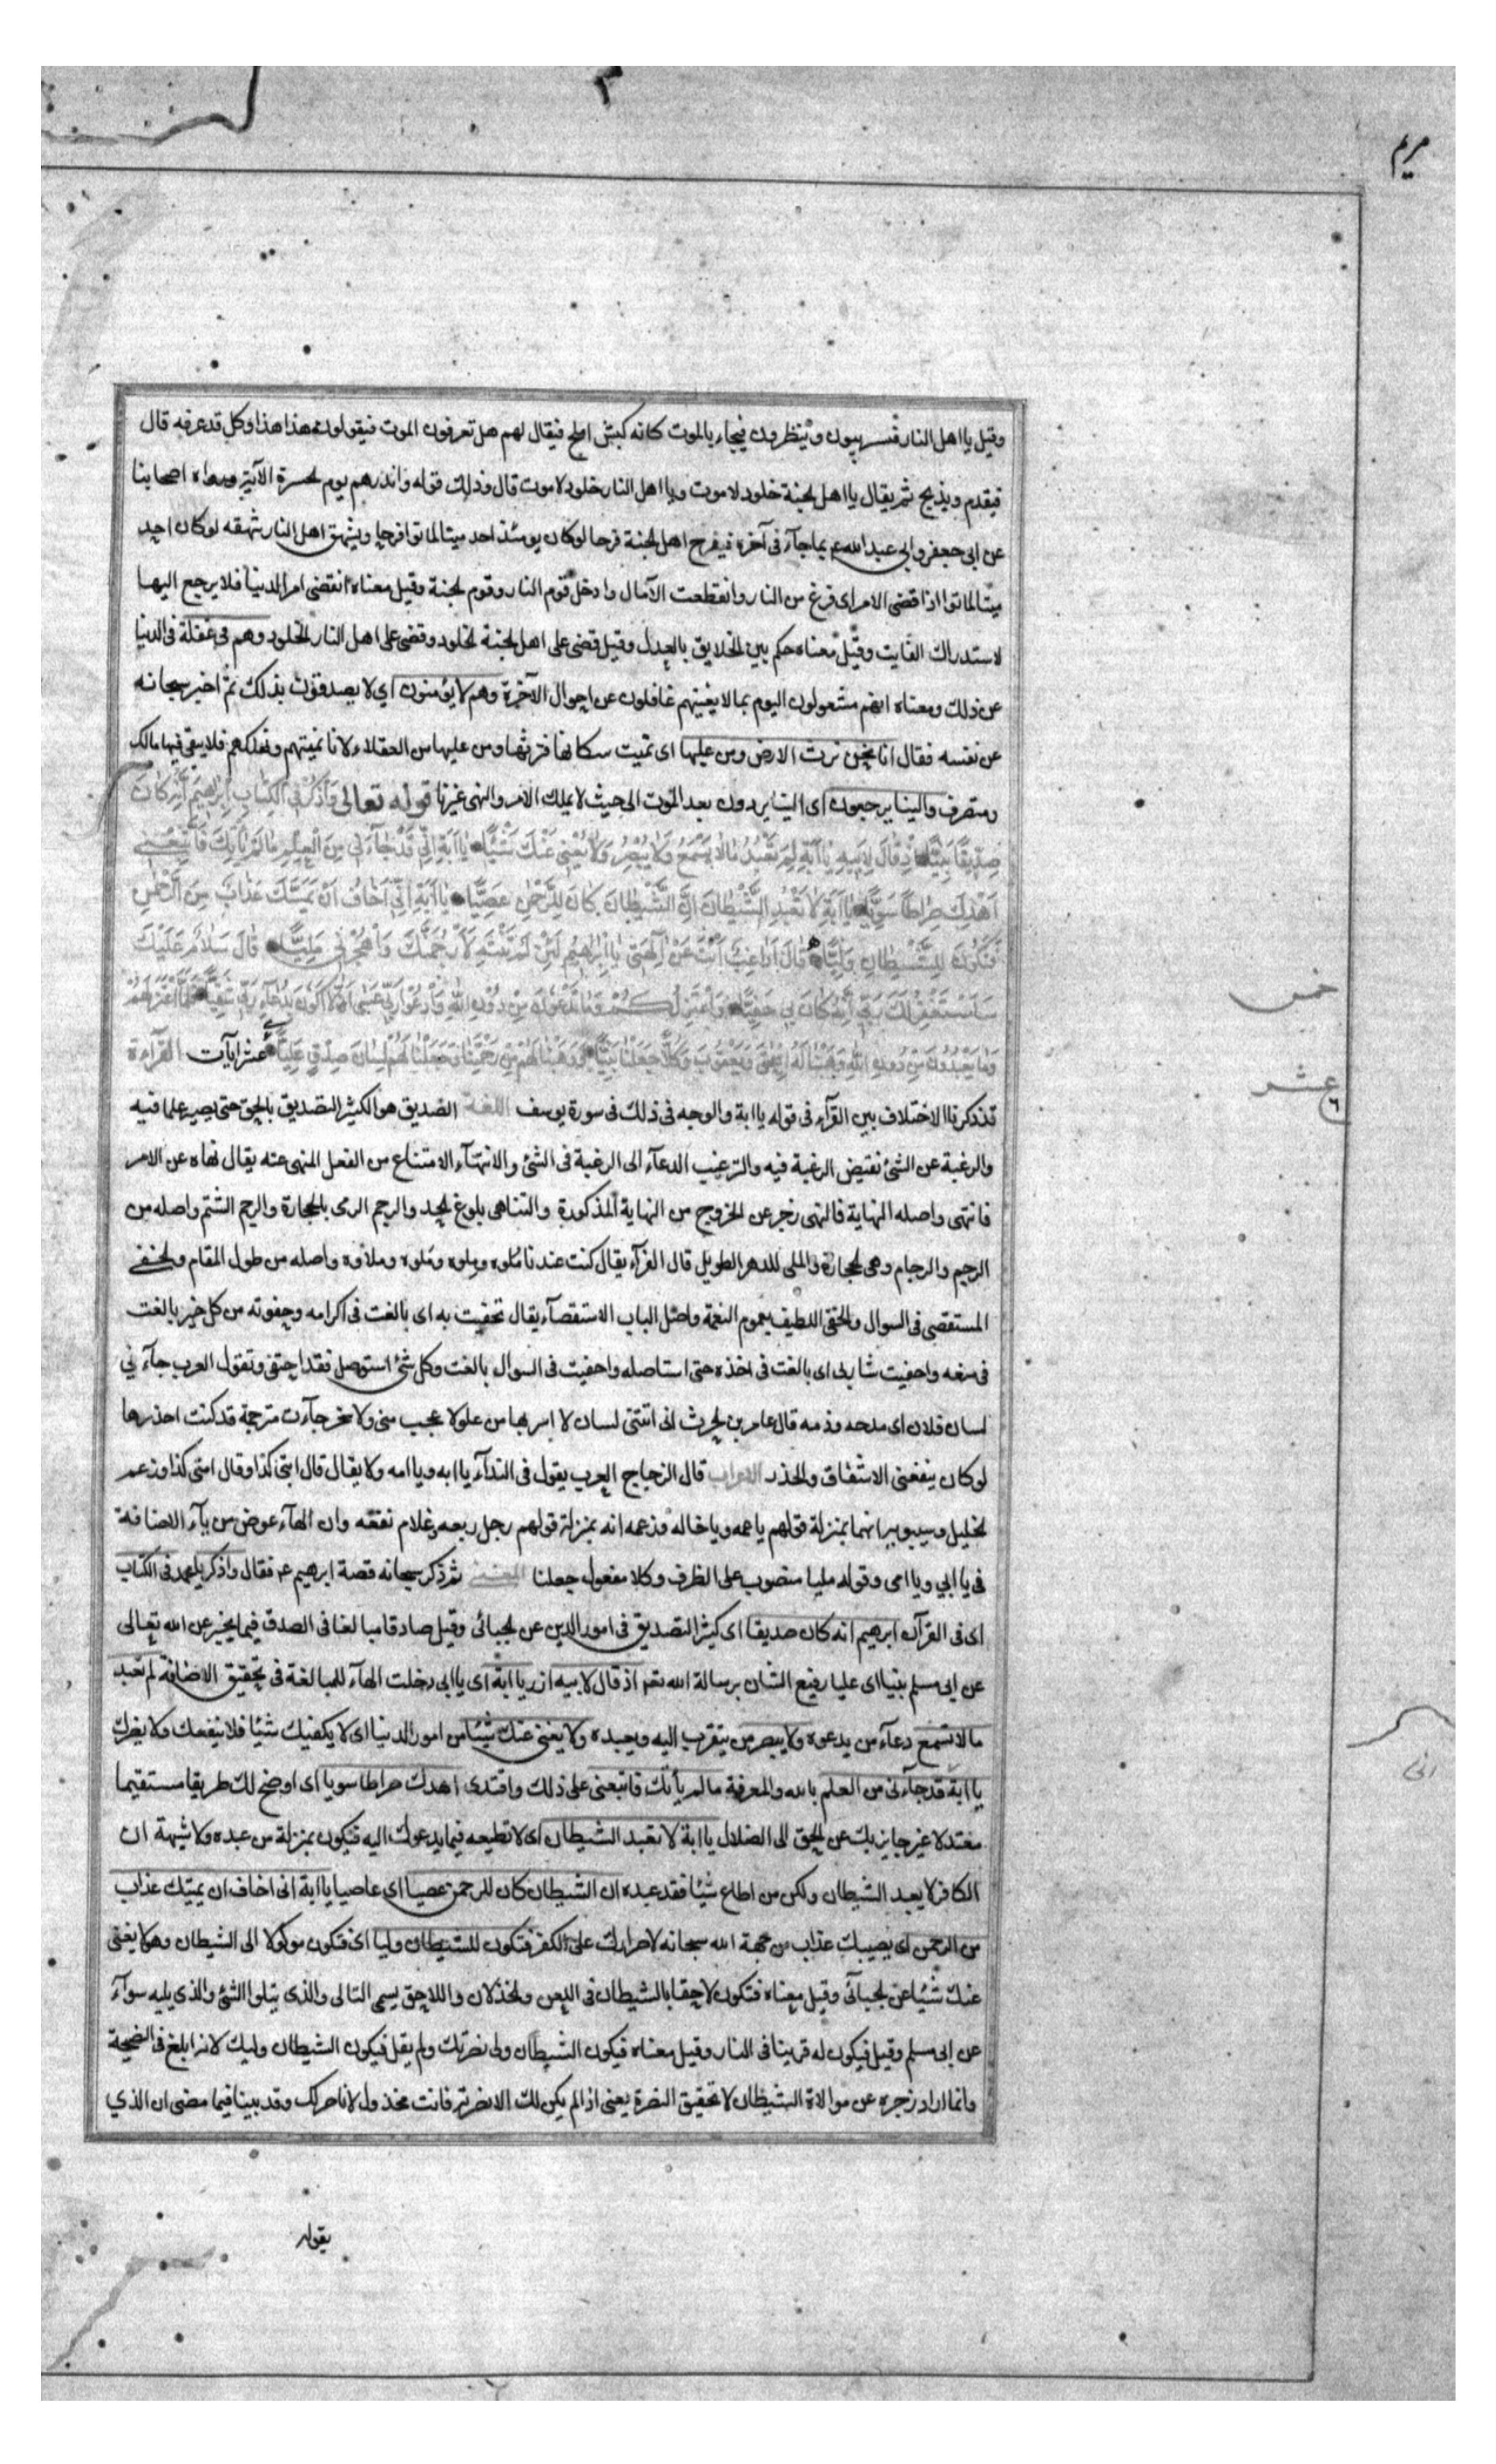 مريم
وقيل يا اهل النار فيشرئبون وينظرون فيجاء بالموت كانه كبش املح فيقال لهم هل تعرفون الموت فيقولون هذا هذا وكل قد عرفه قال
فيقدم ويذبح ثم يقال يا اهل الجنة خلود لا موت ويا اهل النار خلود لا موت قال وذلك قوله وانذرهم يوم الحسرة الآية ورواه اصحابنا
عن ابى جعفر وابى عبد الله ع بما جآء فى آخره فيفرح اهل الجنة فرحا لو كان يومئذ احد ميتا لماتوا فرحا ويشهق اهل النار شهقه لو كان احد
ميتا لماتوا اذا قضى الامر اى فرغ من النار وانقطعت الآمال وادخل قوم النار وقوم الجنة وقيل معناه انقضى امر الدنيا فلا يرجع اليها
لاستدراك الفايت وقيل معناه حكم بين الخلايق بالعدل وقيل قضى على اهل الجنة الخلود وقضى على اهل النار الخلود وهم فى غفلة فى الدنيا
عن ذلك ومعناه انهم مشغولون اليوم بما لا يغنيهم غافلون عن احوال الآخرة وهم لا يؤمنون اي لا يصدقون بذلك ثم اخبر سبحانه
عن نفسه فقال انا نحن نرث الارض ومن عليها اى نميت سكانها فنرثها ومن عليها من العقلاء لانا نميتهم ونهلكهم فلا يبقى فيها مالك
ومتصرف والينا يرجعون اى الينا يردون بعد الموت الى حيث لا يملك الامر والنهى غيرنا قوله تعالى وَاذْكُرْ فِي الْكِتَابِ إِبْرَاهِيمَ إِنَّهُ كَانَ
صِدِّيقًا نَبِيًّا إِذْ قَالَ لِأَبِيهِ يَا أَبَةِ لِمَ تَعْبُدُ مَا لَا يَسْمَعُ وَلَا يُبْصِرُ وَلَا يُغْنِي عَنْكَ شَيْئًا يَا أَبَةِ إِنِّي قَدْ جَآءَنِي مِنَ الْعِلْمِ مَا لَمْ يَأْتِكَ فَاتَّبِعْنِي
أَهْدِكَ صِرَاطًا سَوِيًّا يَا أَبَةِ لَا تَعْبُدِ الشَّيْطَانَ إِنَّ الشَّيْطَانَ كَانَ لِلرَّحْمٰنِ عَصِيًّا يَا أَبَةِ إِنِّي أَخَافُ أَنْ يَمَسَّكَ عَذَابٌ مِنَ الرَّحْمٰنِ
فَتَكُونَ لِلشَّيْطَانِ وَلِيًّا قَالَ أَرَاغِبٌ أَنْتَ عَنْ آلِهَتِي يَا إِبْرَاهِيمُ لَئِنْ لَمْ تَنْتَهِ لَأَرْجُمَنَّكَ وَاهْجُرْنِي مَلِيًّا قَالَ سَلَامٌ عَلَيْكَ
سَأَسْتَغْفِرُ لَكَ رَبِّي إِنَّهُ كَانَ بِي حَفِيًّا وَأَعْتَزِلُكُمْ وَمَا تَدْعُونَ مِنْ دُونِ اللَّهِ وَأَدْعُوا رَبِّي عَسَى أَلَّا أَكُونَ بِدُعَآءِ رَبِّي شَقِيًّا فَلَمَّا اعْتَزَلَهُمْ
خمس
وَمَا يَعْبُدُونَ مِنْ دُونِ اللَّهِ وَهَبْنَا لَهُ إِسْحٰقَ وَيَعْقُوبَ وَكُلًّا جَعَلْنَا نَبِيًّا وَوَهَبْنَا لَهُمْ مِنْ رَحْمَتِنَا وَجَعَلْنَا لَهُمْ لِسَانَ صِدْقٍ عَلِيًّا عشر آيات القراءة
عشر
٦
قد ذكرنا الاختلاف بين القرآء فى قوله يا ابة والوجه فى ذلك فى سورة يوسف اللغة الصديق هو الكثير التصديق بالحق حتى يصير علما فيه
والرغبة عن الشئ نقيض الرغبة فيه والترغيب الدعآء الى الرغبة فى الشئ والانتهآء الامتناع من الفعل المنهى عنه يقال نهاه عن الامر
فانتهى واصله النهاية فالنهى زجر عن الخروج من النهاية المذكورة والتناهى بلوغ الحد والرجم الرمى بالحجارة والرجم الشتم واصله من
الرجم والرجام وهى الحجارة والملى الدهر الطويل قال الفرآء يقال كنت عندنا ملوة وملوة وملوة وملاوة واصله من طول المقام والحفى
المستقصى فى السوال والحفى اللطيف بعموم النعمة واصل الباب الاستقصآء يقال تحفيت به اى بالغت فى اكرامه وحفوته من كل خير بالغت
فى منعه واحفيت شاربى اى بالغت فى اخذه حتى استاصله واحفيت فى السوال بالغت وكل شئ استوصل فقد احتفى وتقول العرب جآءني
لسان فلان اى مدحه وذمه قال عامر بن الحرث انى اتتنى لسان لا اسر بها من علو لا عجب منى ولا سخر جآءت مترجمة قد كنت احذرها
لو كان ينفعنى الاشفاق والحذر الاعراب قال الزجاج العرب يقول فى الندآء يا ابه ويا امه ولا يقال قال ابتى كذا وقال امتى كذا وزعم
الخليل وسيبويه انهما بمنزلة قولهم يا عمه ويا خاله وزعمه انه بمنزلة قولهم رجل ربعه وغلام نفعه وان الهآء عوض من يآء الاضافة
فى يا ابي ويا امى وقوله مليا منصوب على الظرف وكلا مفعول جعلنا المعنى ثم ذكر سبحانه قصة ابرهيم ع فقال واذكر يا محمد فى الكتاب
اى فى القرآن ابرهيم انه كان صديقا اى كثير التصديق فى امور الدين عن الجبائى وقيل صادقا مبالغا فى الصدق فيما يخبر عن الله تعالى
عن ابى مسلم نبيا اى عليا رفيع الشان برسالة الله تعم اذ قال لابيه ازر يا ابة اى يا ابى دخلت الهآء للمبالغة فى تحقيق الاضافة لم تعبد
ما لا تسمع دعآء من يدعوه ولا يبصر من يتقرب اليه ويعبده ولا يغنى عنك شيئا من امور الدنيا اى لا يكفيك شيئا فلا ينفعك ولا يضرك
يا ابة قد جآءنى من العلم بالله والمعرفة ما لم يأتك فاتبعنى على ذلك واقتد بى اهدك صراطا سويا اى اوضح لك طريقا مستقيما
معتدلا غير جايز بك عن الحق الى الضلال يا ابة لا تعبد الشيطان اى لا تطيعه فيما يدعوك اليه فتكون بمنزلة من عبده ولا شبهة ان
الكافر لا يعبد الشيطان ولكن من اطاع شيئا فقد عبده ان الشيطان كان للرحمن عصيا اي عاصيا يا ابة انى اخاف ان يمسك عذاب
من الرحمن اى يصيبك عذاب من جهة الله سبحانه لاصرارك على الكفر فتكون للشيطان وليا اى فتكون موكولا الى الشيطان وهو لا يغنى
عنك شيئا عن الجبائى وقيل معناه فتكون لاحقا بالشيطان فى اللعن والخذلان واللاحق يسمى التالى والذى يتلوا الشئ والذى يليه سوآء
عن ابى مسلم وقيل فيكون له قرينا فى النار وقيل معناه فيكون الشيطان ولى نصرتك ولم يقل فيكون الشيطان وليك لانه ابلغ فى الفضيحة
وانما اراد زجره عن موالاة الشيطان لا تحقيق النصرة يعنى اذا لم يكن لك الا نصرته فانت مخذول لا ناصر لك وقد بينا فيما مضى ان الذي
يقوله